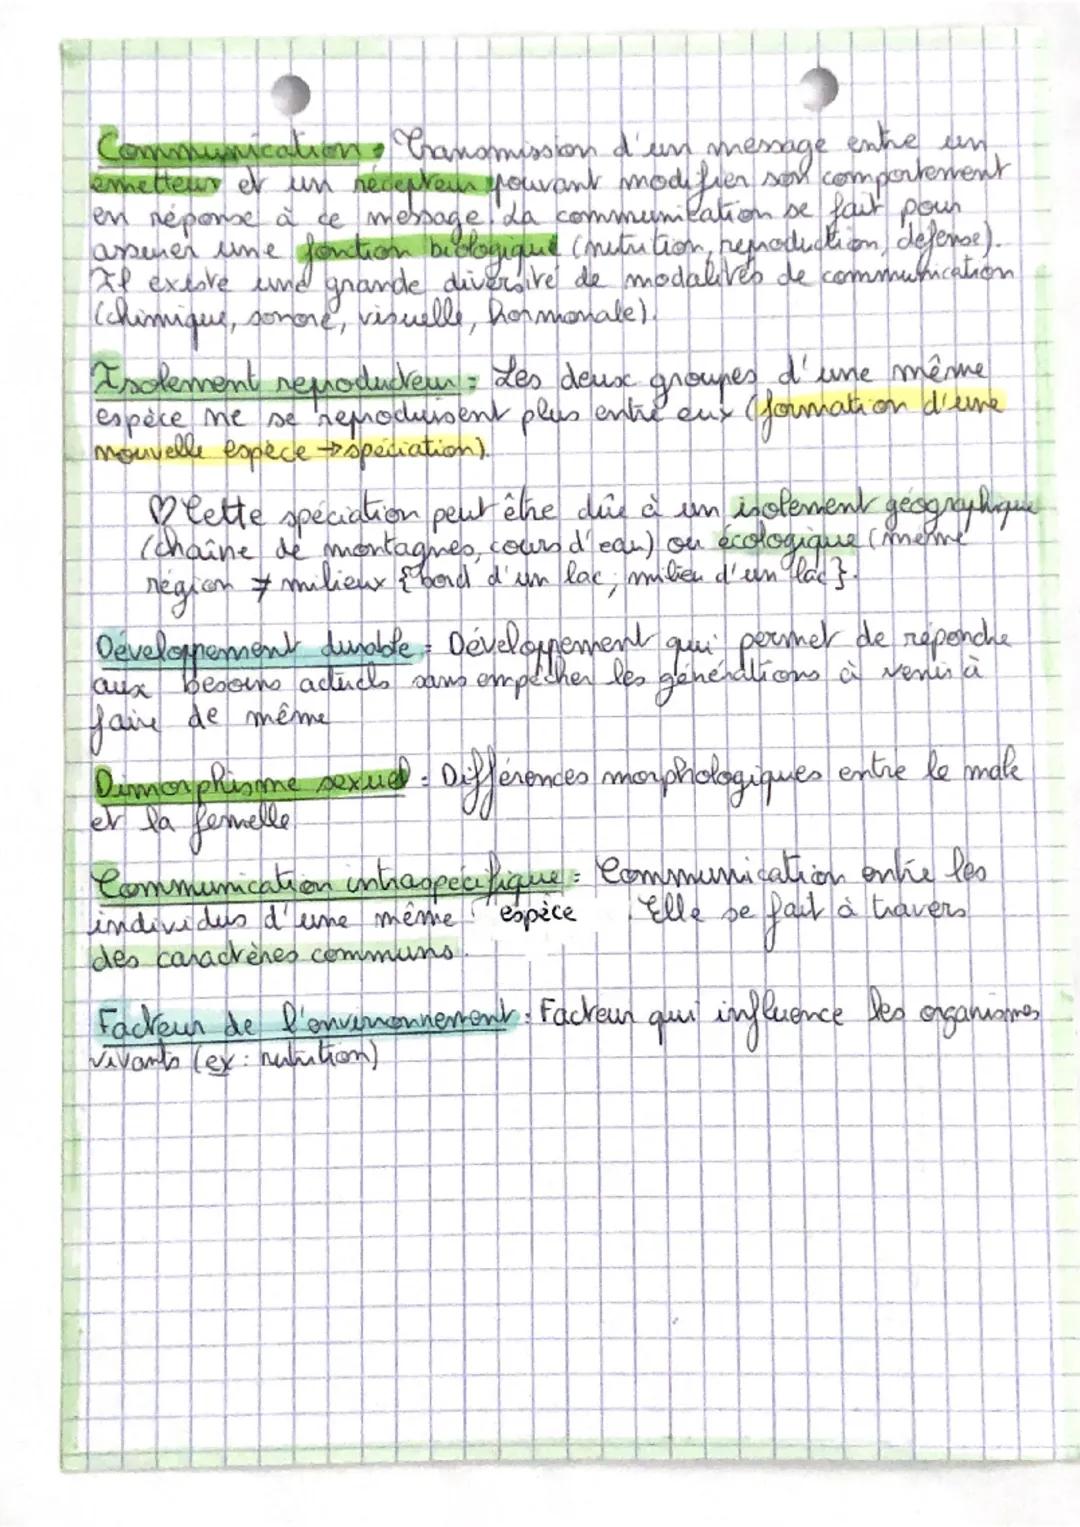 Communication : Transmission d'un message entre un
émetteur et un récepteur pouvant modifier son comportement
en réponse à ce message. La communication se fait pour
assurer une fonction biologique (nutrition, reproduction, défense).
Il existe une grande diversité de modalités de communication
(chimique, sonore, visuelle, hormonale).
Isolement reproducteur : Les deux groupes d'une même
espèce ne se reproduisent plus entre eux (formation d'une
nouvelle espèce → spéciation).
♡ Cette spéciation peut être dûe à un isolement géographique
(chaîne de montagnes, cours d'eau) ou écologique (même
région ≠ milieux {bord d'un lac ; milieu d'un lac}.
Développement durable : Développement qui permet de répondre
aux besoins actuels sans empêcher les générations à venir à
faire de même
Dimorphisme sexuel : Différences morphologiques entre le male
et la femelle.
Communication intraspécifique : Communication entre les
individus d'une même espèce. Elle se fait à travers
des caractères communs.
Facteur de l'environnement : Facteur qui influence les organismes
vivants (ex : nutrition)